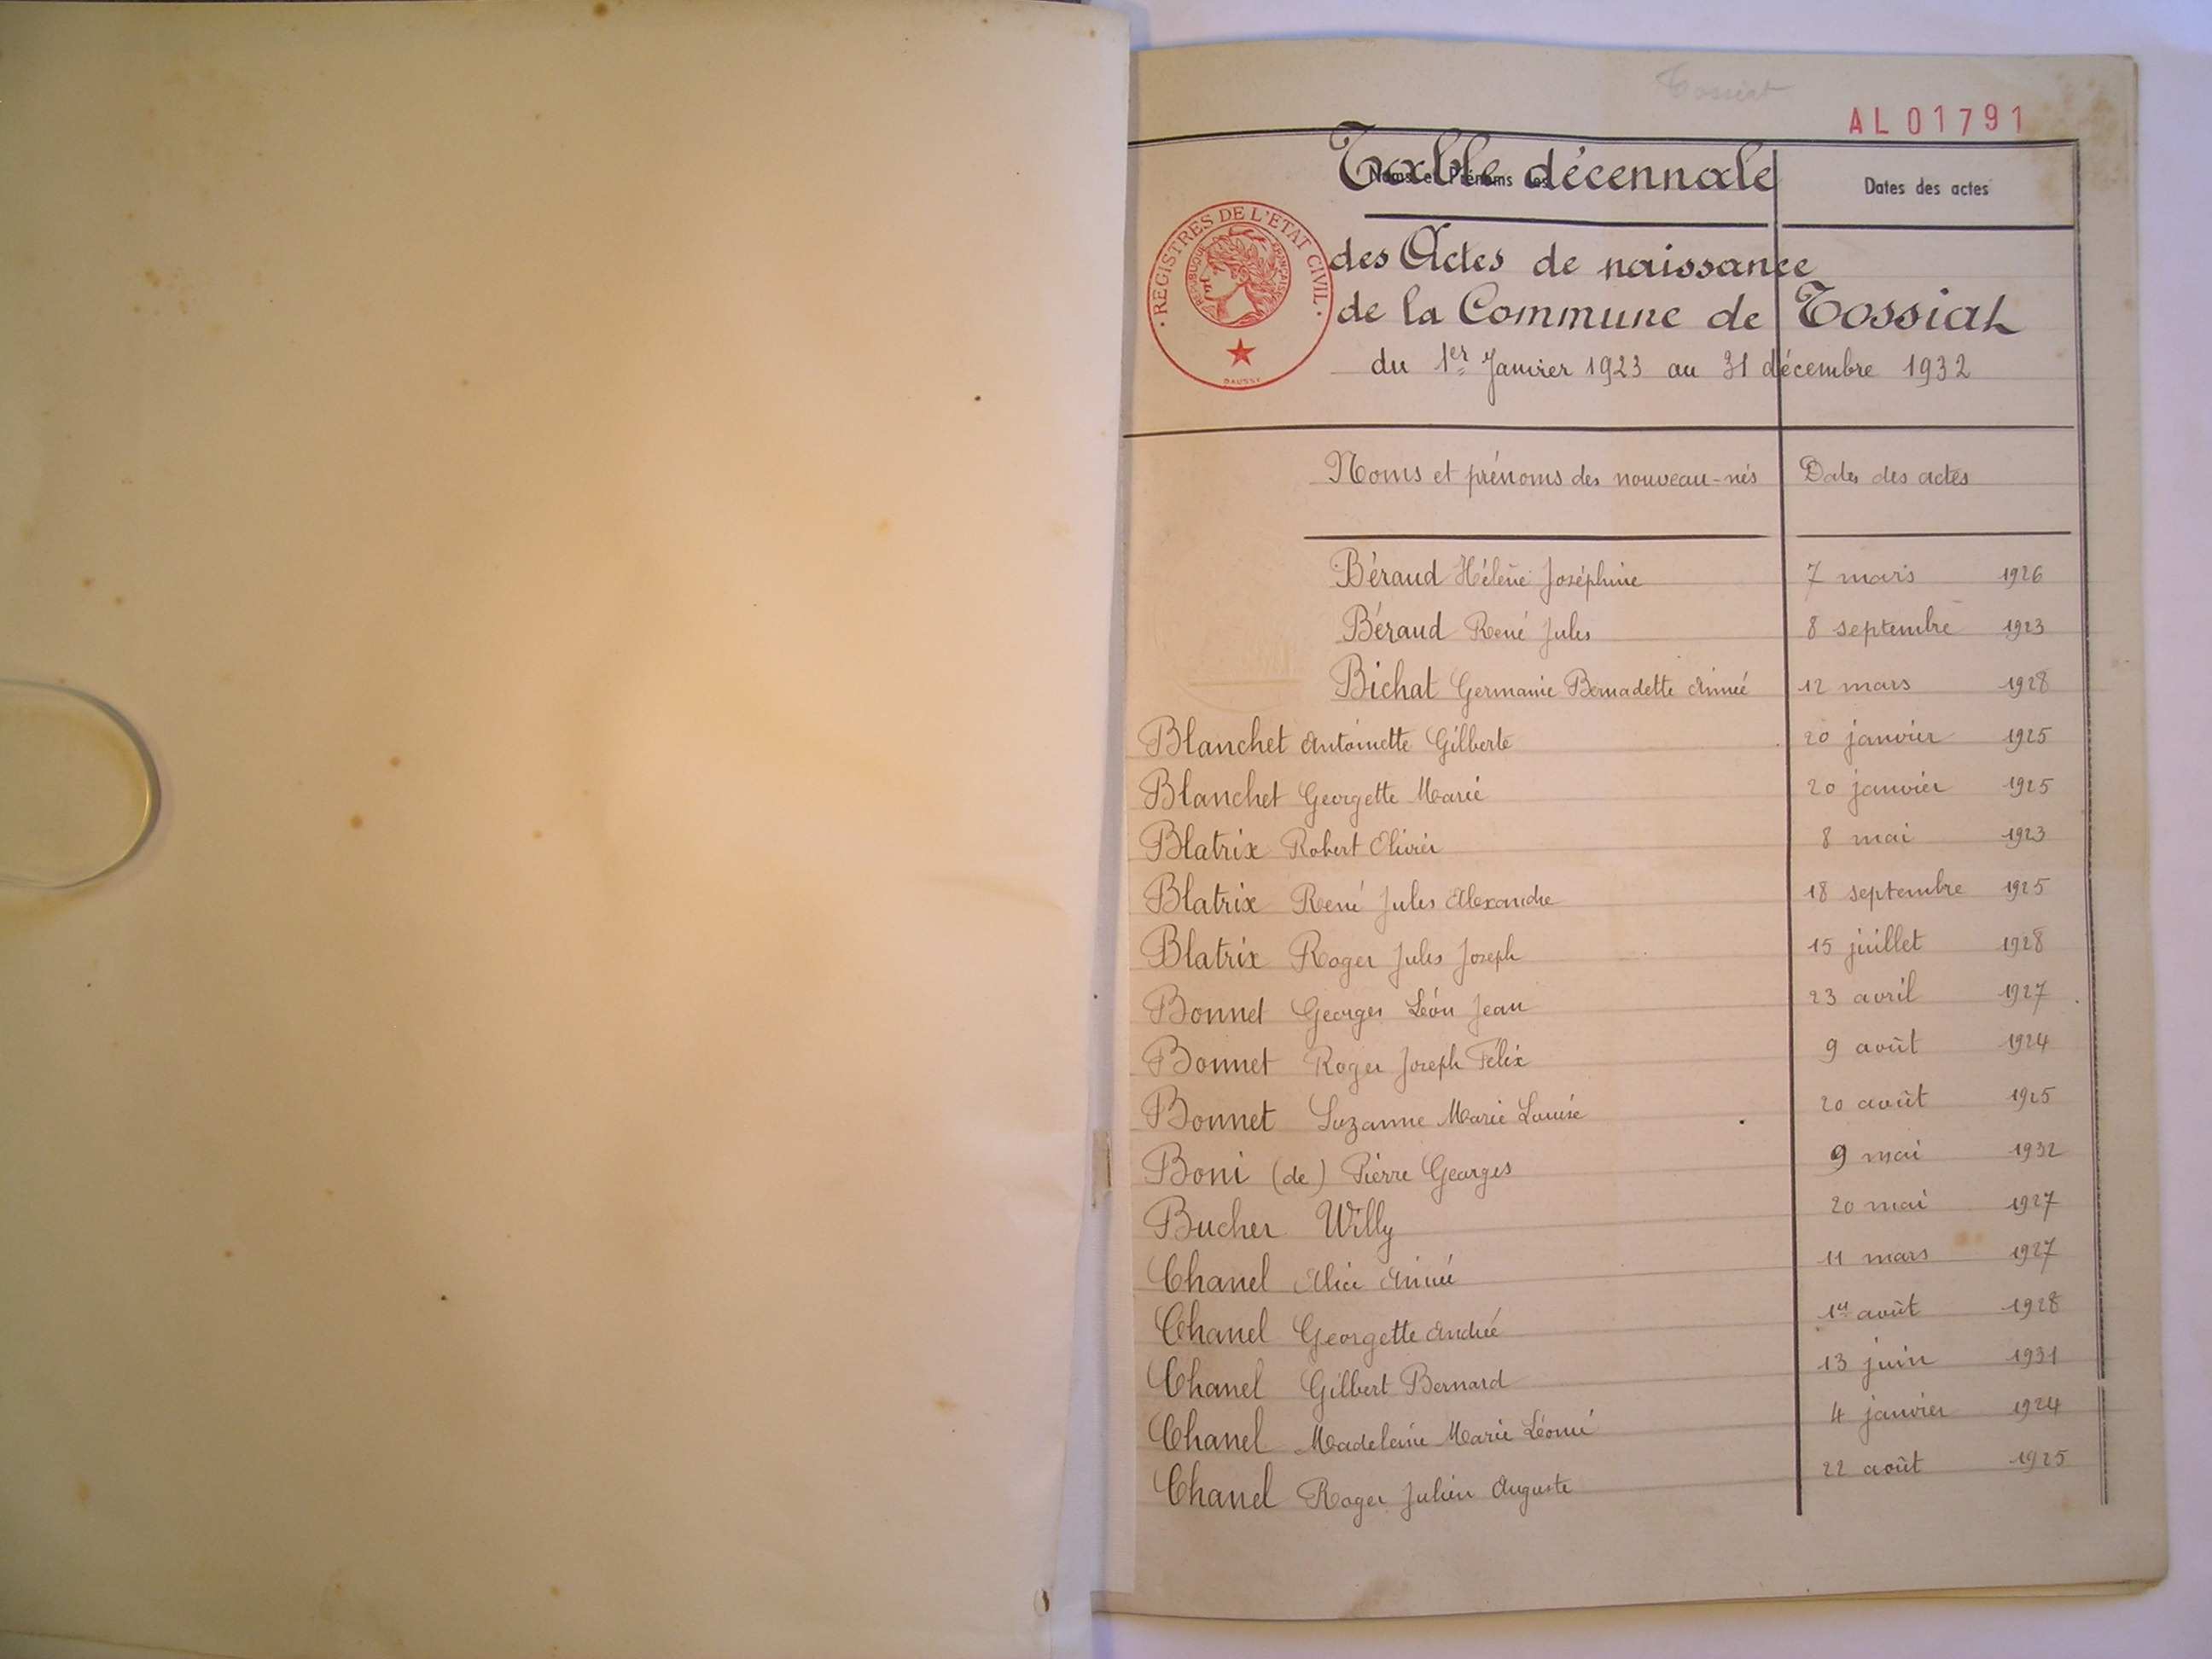 Tossiat
AL 01791
Table décennale
Noms et Prénoms des
Dates des actes
REGISTRES DE L'ETAT CIVIL
REPUBLIQUE FRANÇAISE
DAUSSY
des Actes de naissance
de la Commune de Tossiat
du 1er Janvier 1923 au 31 décembre 1932
Noms et prénoms des nouveau-nés Dates des actes
Béraud Hélène Joséphine 7 mars 1926
Béraud René Jules 8 septembre 1923
Bichat Germanie Bernadette Aimée 12 mars 1928
Blanchet Antoinette Gilberte 20 janvier 1925
Blanchet Georgette Marie 20 janvier 1925
Blatrix Robert Olivier 8 mai 1923
Blatrix René Jules Alexandre 18 septembre 1925
Blatrix Roger Jules Joseph 15 juillet 1928
Bonnet Georges Léon Jean 23 avril 1927
Bonnet Roger Joseph Félix 9 août 1924
Bonnet Suzanne Marie Louise 20 août 1925
Boni (de) Pierre Georges 9 mai 1932
Bucher Willy 20 mai 1927
Chanel Alice Aimée 11 mars 1927
Chanel Georgette Andrée 1er août 1928
Chanel Gilbert Bernard 13 juin 1931
Chanel Madeleine Marie Léonie 4 janvier 1924
Chanel Roger Julien Auguste 22 août 1925